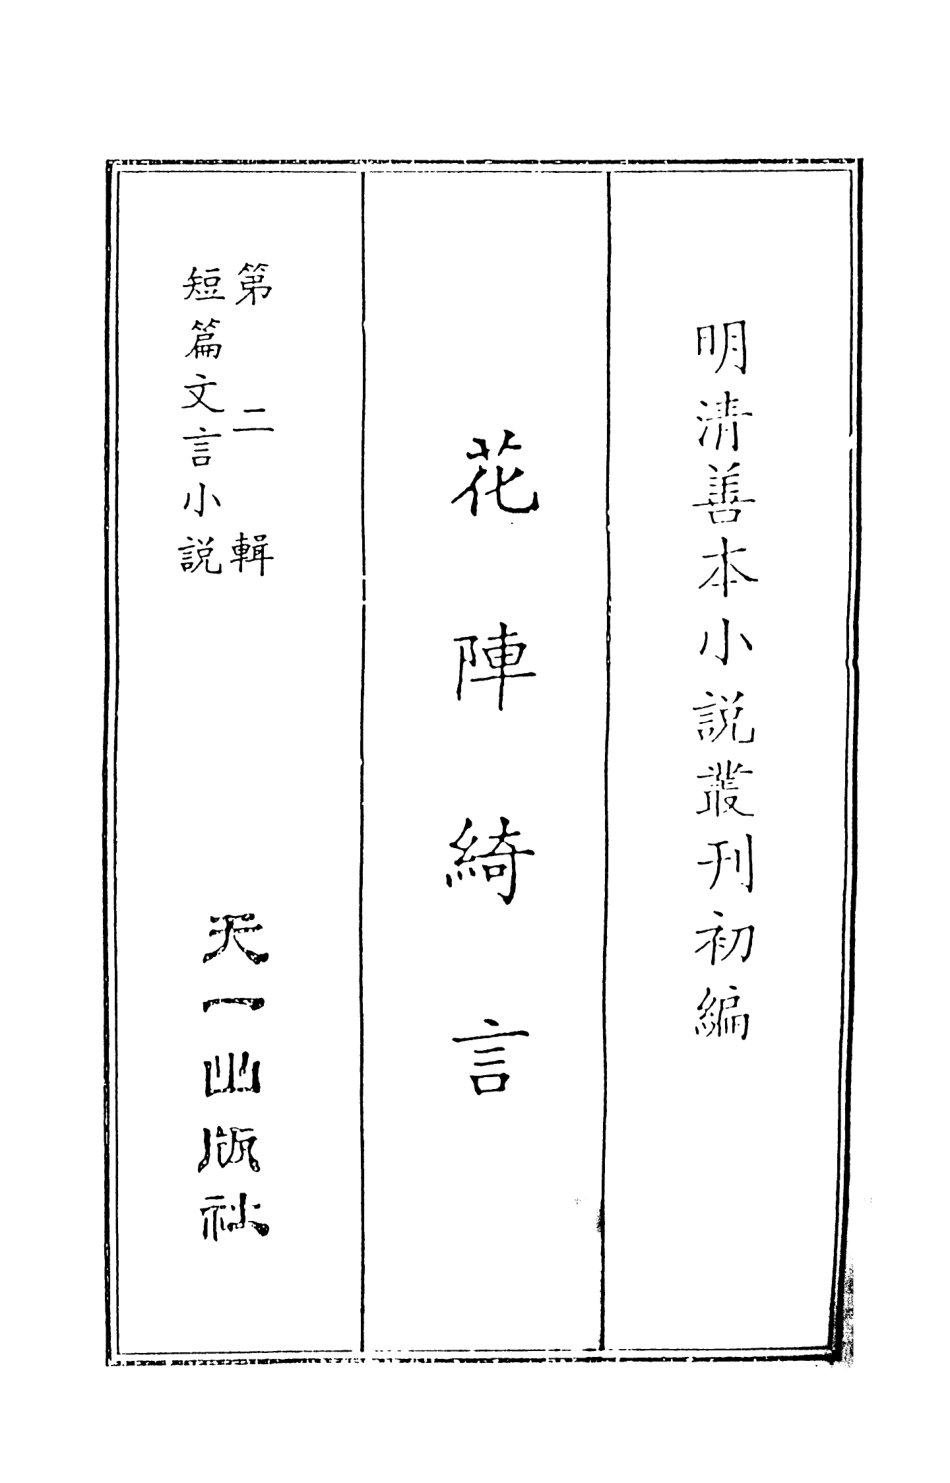 明清善本小説叢刊初編
花陣綺言
第二輯
短篇文言小説
天一出版社